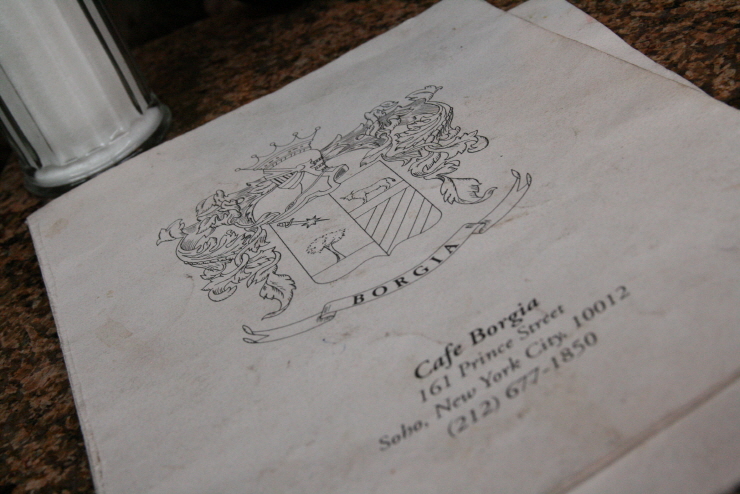 BORGIA
Cafe Borgia
161 Prince Street
Soho, New York City, 10012
(212) 677-1850